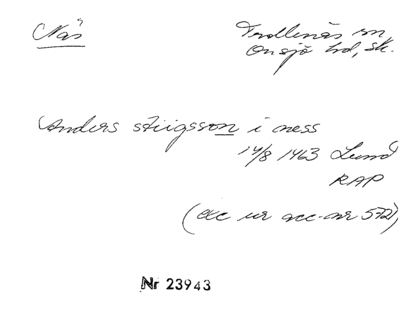 Näs
Trollenäs sn
Onsjö hd, sk.
Anders stiigsson i næss
14/8 1463 Lund
RAP
(exc ur acc-nr 572)
Nr 23943